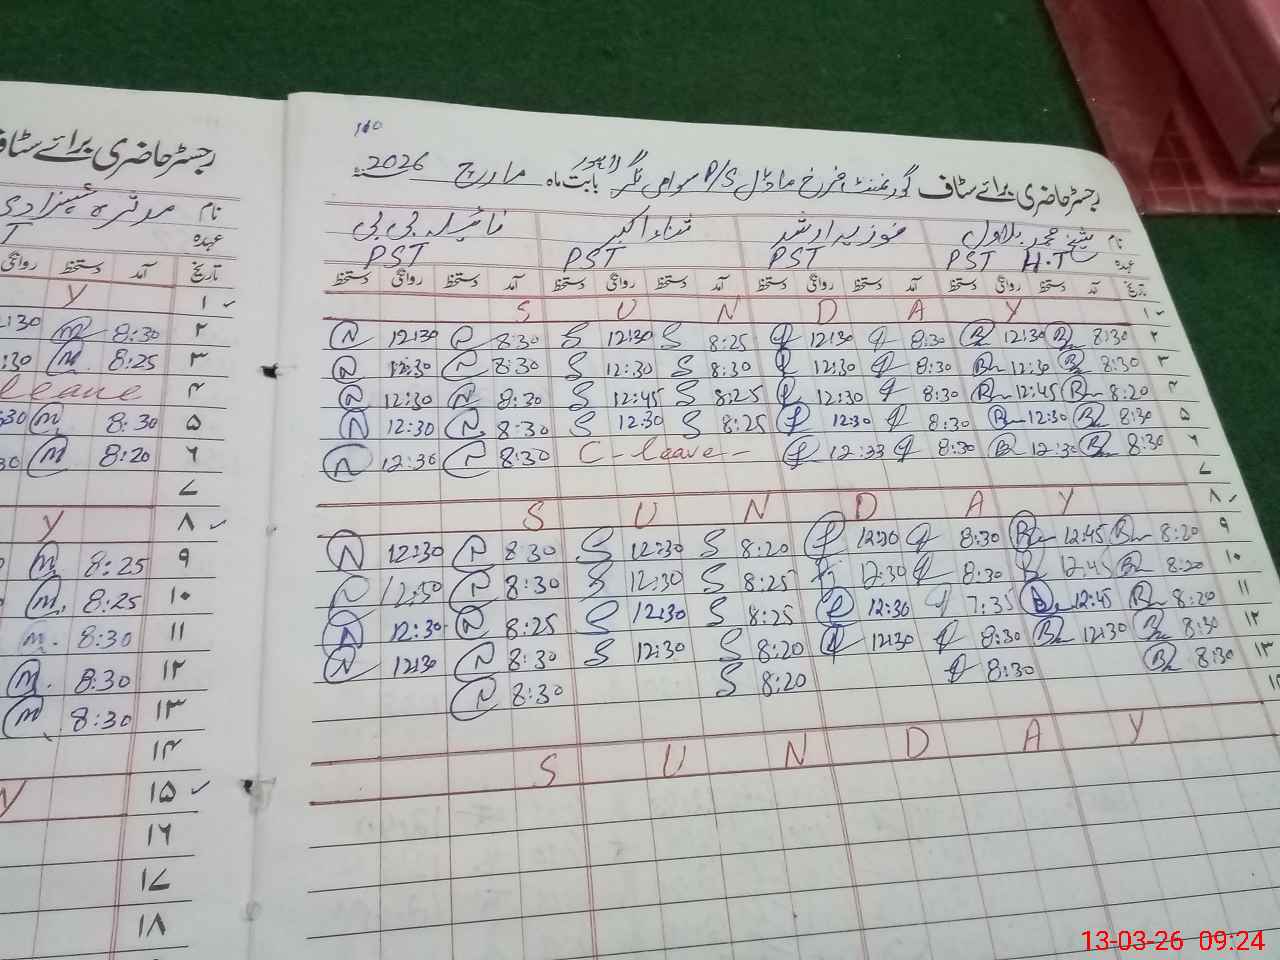 رجسٹر حاضری برائے سٹاف
نام
عہدہ
تاریخ آمد دستخط روانگی
۱ Y
۲ 8:30 m 12:30
۳ 8:25 m :30
۴ leave
۵ 8:30 m 30
۶ 8:20 m 30
۷
۸ Y
۹ 8:25 m
۱۰ 8:25 m
۱۱ 8:30 m
۱۲ 8:30 m
۱۳ 8:30 m
۱۴
۱۵ Y
۱۶
۱۷
۱۸
160
رجسٹر حاضری برائے سٹاف گورنمنٹ فرخ ماڈل P/S سوامی نگر لاہور بابت ماہ مارچ 2026
نام شیخ محمد بلاول فوزیہ ارشد ثناء اکبر نائیلہ بی بی
عہدہ PST H.T PST PST PST
تاریخ آمد دستخط روانگی دستخط آمد دستخط روانگی دستخط آمد دستخط روانگی دستخط آمد دستخط روانگی دستخط
۱ S U N D A Y
N 12:30 N 8:30 S 12:30 S 8:25 f 12:30 f 8:30 B 12:30 B 8:30 ۲
N 12:30 N 8:30 S 12:30 S 8:30 f 12:30 f 8:30 B 12:30 B 8:30 ۳
N 12:30 N 8:30 S 12:45 S 8:25 f 12:30 f 8:30 B 12:45 B 8:20 ۴
N 12:30 N 8:30 S 12:30 S 8:25 f 12:30 f 8:30 B 12:30 B 8:30 ۵
N 12:30 N 8:30 C-leave- f 12:33 f 8:30 B 12:30 B 8:30 ۶
۷
S U N D A Y ۸
N 12:30 N 8:30 S 12:30 S 8:20 f 12:30 f 8:30 B 12:45 B 8:20 ۹
N 12:30 N 8:30 S 12:30 S 8:25 f 12:30 f 8:30 B 12:45 B 8:20 ۱۰
N 12:30 N 8:25 S 12:30 S 8:25 f 12:30 f 7:35 B 12:45 B 8:20 ۱۱
N 12:30 N 8:30 S 12:30 S 8:20 f 12:30 f 8:30 B 12:30 B 8:30 ۱۲
N 8:30 S 8:20 f 8:30 B 8:30 ۱۳
S U N D A Y
13-03-26 09:24